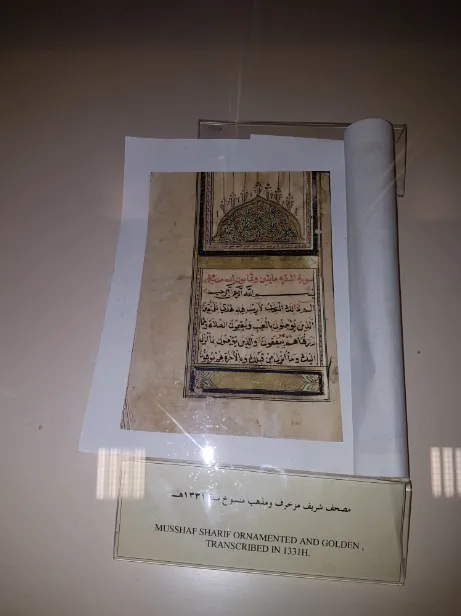 سورة البقرة مايتين وثمانون
بسم الله الرحمن الرحيم
الم ذلك الكتاب لا ريب فيه هدى للمتقين
الذين يؤمنون بالغيب ويقيمون الصلاة ومما
رزقناهم ينفقون والذين يؤمنون بما أنزل
إليك وما أنزل من قبلك وبالآخرة هم يوقنون
مصحف شريف مزخرف ومذهب منسوخ سنة ١٣٣١هـ
MUSSHAF SHARIF ORNAMENTED AND GOLDEN ,
TRANSCRIBED IN 1331H.